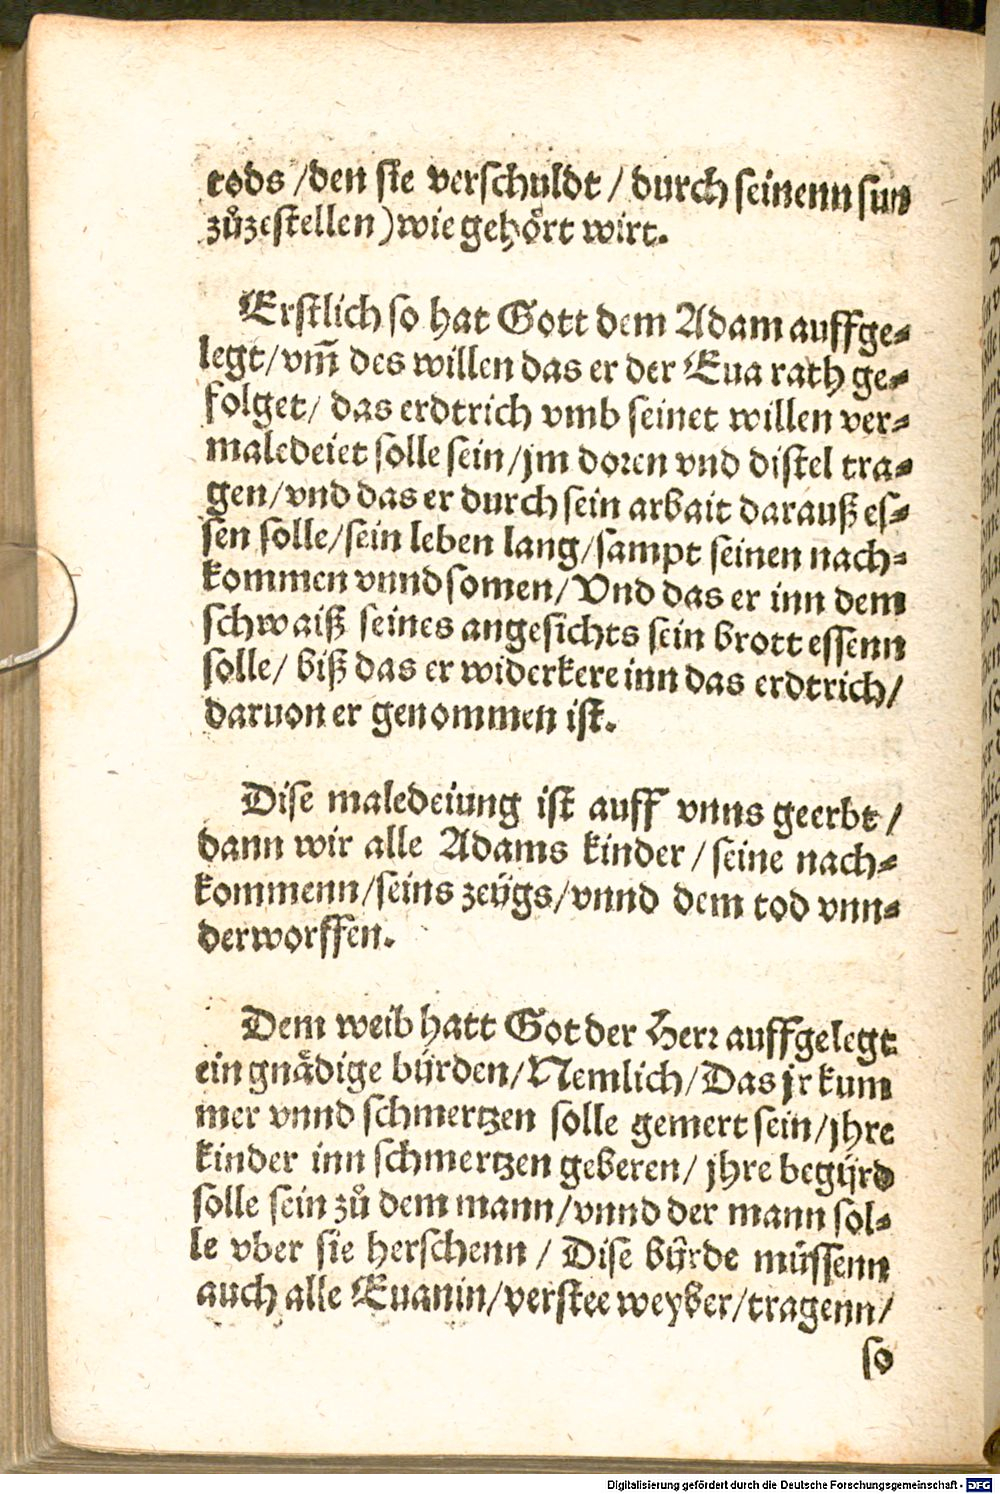 tods /den sie verschuldt / durch seinenn sun
zůzestellen) wie gehört wirt.
Erstlich so hat Gott dem Adam auffge⸗
legt/vm̃ des willen das er der Eua rath ge⸗
folget/ das erdtrich vmb seinet willen ver⸗
maledeiet solle sein/jm doren vnd distel tra⸗
gen/vnd das er durch sein arbait darauß es⸗
sen solle/sein leben lang/sampt seinen nach⸗
kommen vnnd somen/Vnd das er inn dem
schwaiß seines angesichts sein brott essenn
solle/ biß das er widerkere inn das erdtrich/
daruon er genommen ist.
Dise maledeiung ist auff vnns geerbt/
dann wir alle Adams kinder/seine nach⸗
kommenn/seins zeÿgs/vnnd dem tod vnn⸗
derworffen.
Dem weib hatt Got der Herr auffgelegt
ein gnädige bürden/Nemlich/Das jr kum
mer vnnd schmertzen solle gemert sein/jhre
kinder inn schmertzen geberen/ jhre begÿrd
solle sein zů dem mann/vnnd der mann sol⸗
le vber sie herschenn / Dise bÿrde müssenn
auch alle Euanin/verstee weyber/tragenn/
so
Digitalisierung gefördert durch die Deutsche Forschungsgemeinschaft - DFG